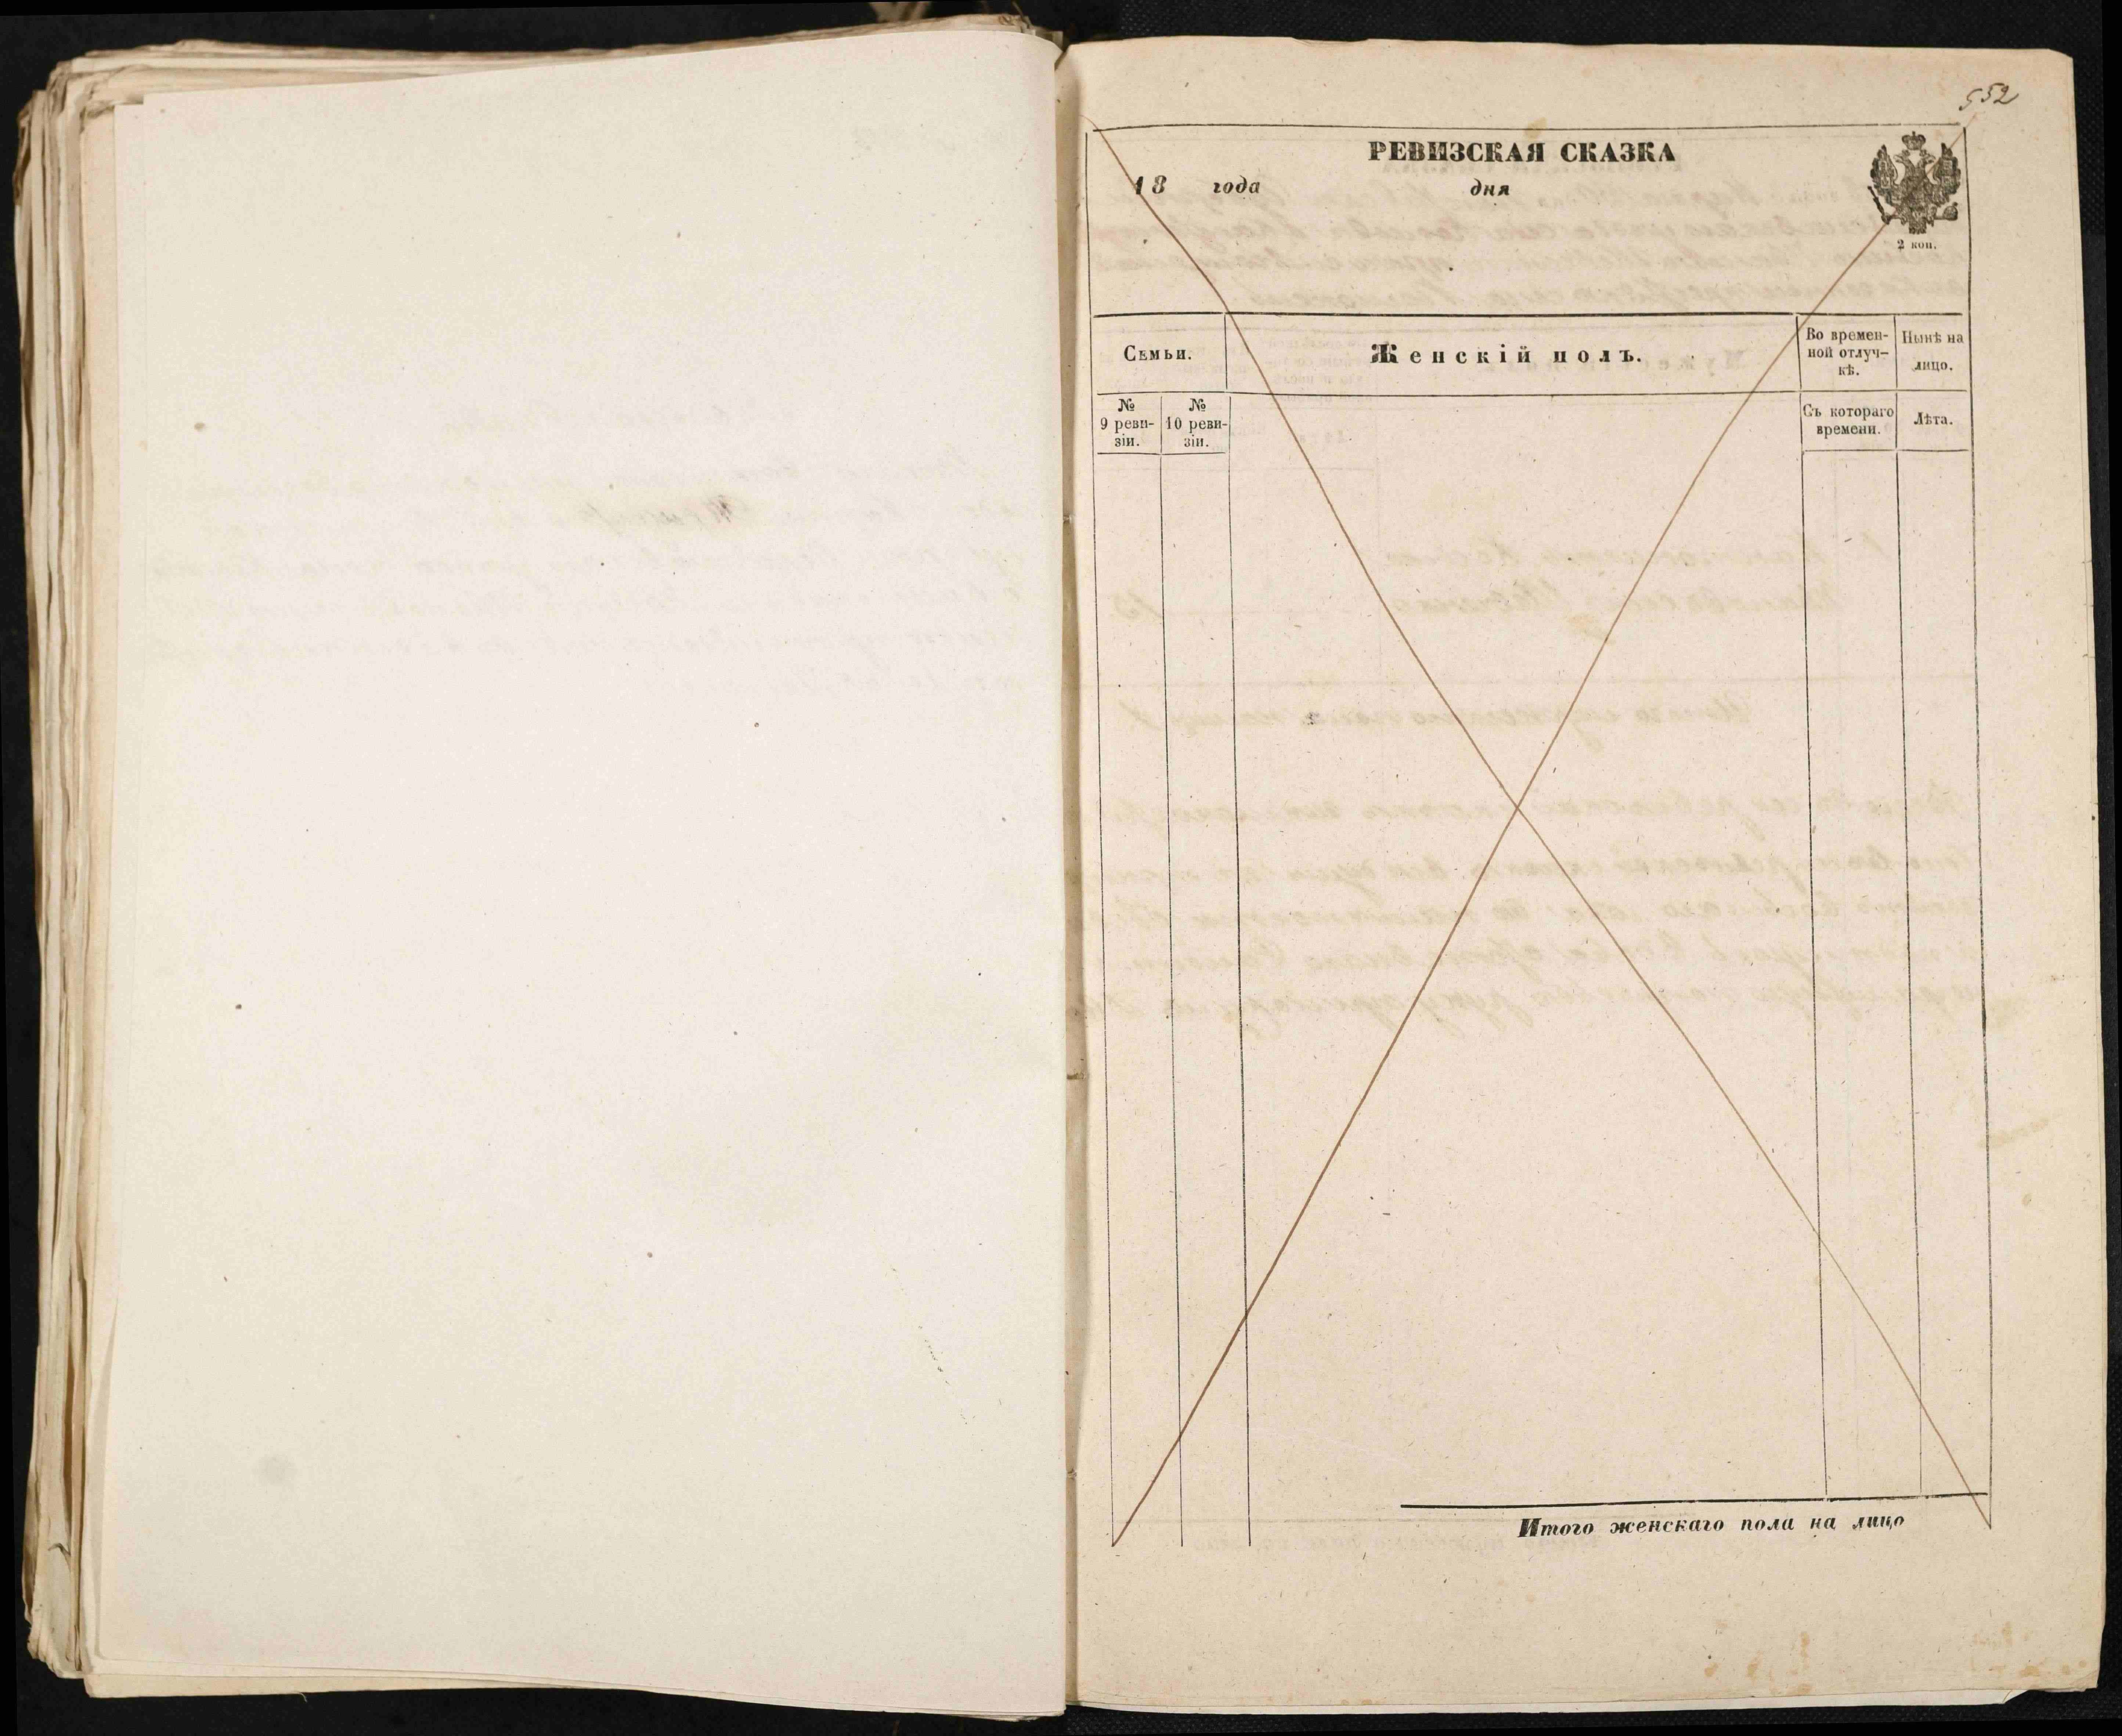 552
РЕВИЗСКАЯ СКАЗКА
18 года дня
2 коп.
Семьи.
Женскій полъ.
Во времен-
ной отлуч-
кѣ.
Нынѣ на
лицо.
№
9 реви-
зіи.
№
10 реви-
зіи.
Съ котораго
времени.
Лѣта.
Итого женскаго пола на лицо